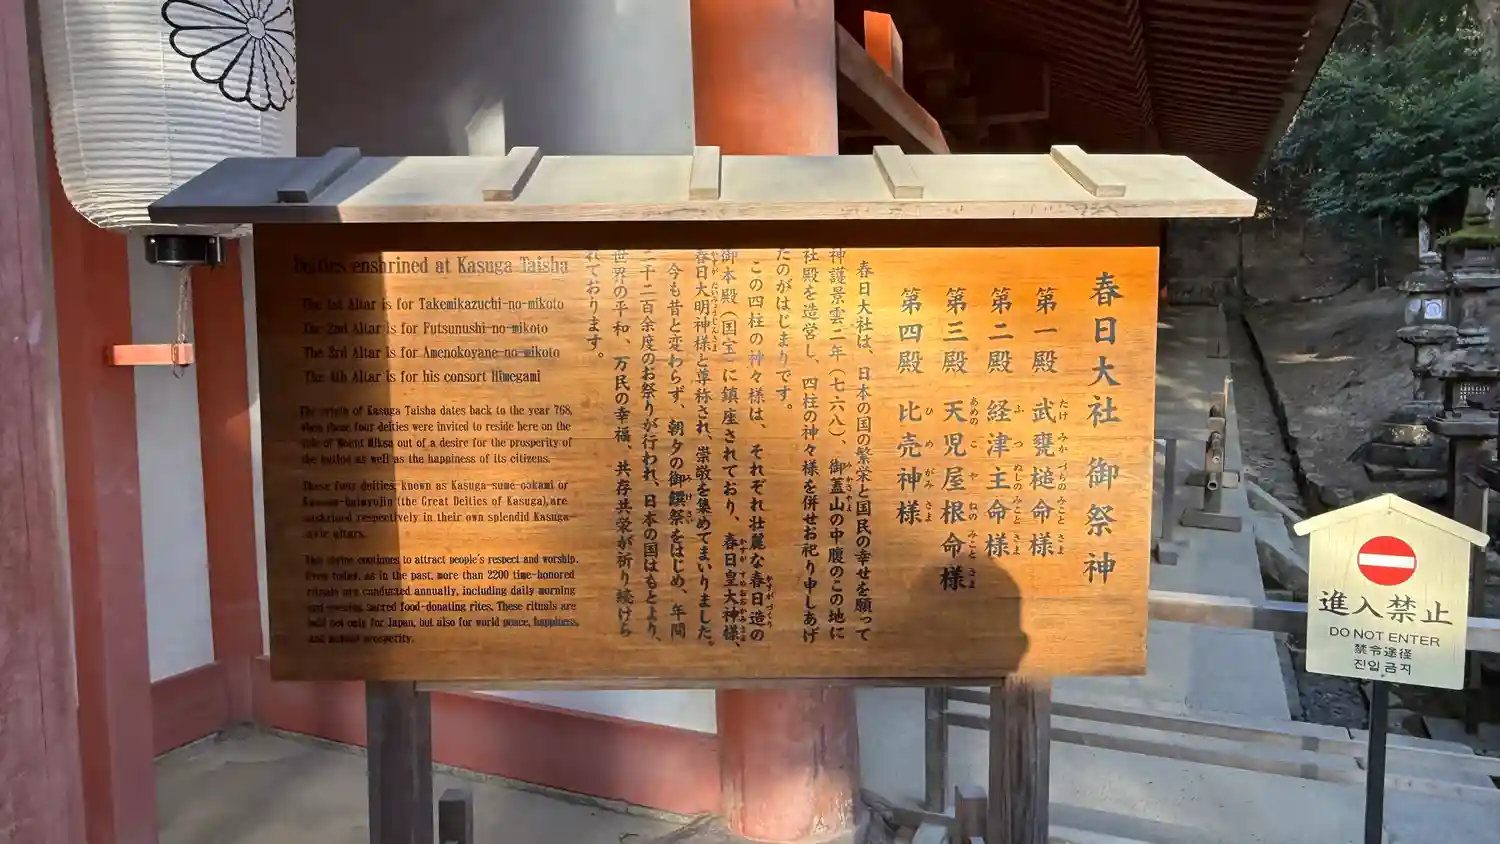 Deities enshrined at Kasuga Taisha
The 1st Altar is for Takemikazuchi-no-mikoto
The 2nd Altar is for Futsunushi-no-mikoto
The 3rd Altar is for Amenokoyane-no-mikoto
The 4th Altar is for his consort Himegami
The origin of Kasuga Taisha dates back to the year 768,
when these four deities were invited to reside here on the
side of Mount Mikasa out of a desire for the prosperity of
the nation as well as the happiness of its citizens.
These four deities, known as Kasuga-sume-ookami or
Kasuga-daimyojin (the Great Deities of Kasuga), are
enshrined respectively in their own splendid Kasuga-
style altars.
This shrine continues to attract people's respect and worship.
Even today, as in the past, more than 2200 time-honored
rituals are conducted annually, including daily morning
and evening sacred food-donating rites. These rituals are
held not only for Japan, but also for world peace, happiness,
and mutual prosperity.
春日大社御祭神
第一殿 武甕槌命様
たけみかづちのみことさま
第二殿 経津主命様
ふつぬしのみことさま
第三殿 天児屋根命様
あめのこやねのみことさま
第四殿 比売神様
ひめがみさま
春日大社は、日本の国の繁栄と国民の幸せを願って
神護景雲二年(七六八)、御蓋山の中腹のこの地に
みかさやま
社殿を造営し、四柱の神々様を併せお祀り申しあげ
たのがはじまりです。
この四柱の神々様は、それぞれ壮麗な春日造の
かすがづくり
御本殿(国宝)に鎮座されており、春日皇大神様、
かすがすめおおかみさま
春日大明神様と尊称され、崇敬を集めてまいりました。
かすがだいみょうじんさま
今も昔と変わらず、朝夕の御饌祭をはじめ、年間
みけさい
二千二百余度のお祭りが行われ、日本の国はもとより、
世界の平和、万民の幸福、共存共栄が祈り続けら
れております。
進入禁止
DO NOT ENTER
禁令途径
진입금지